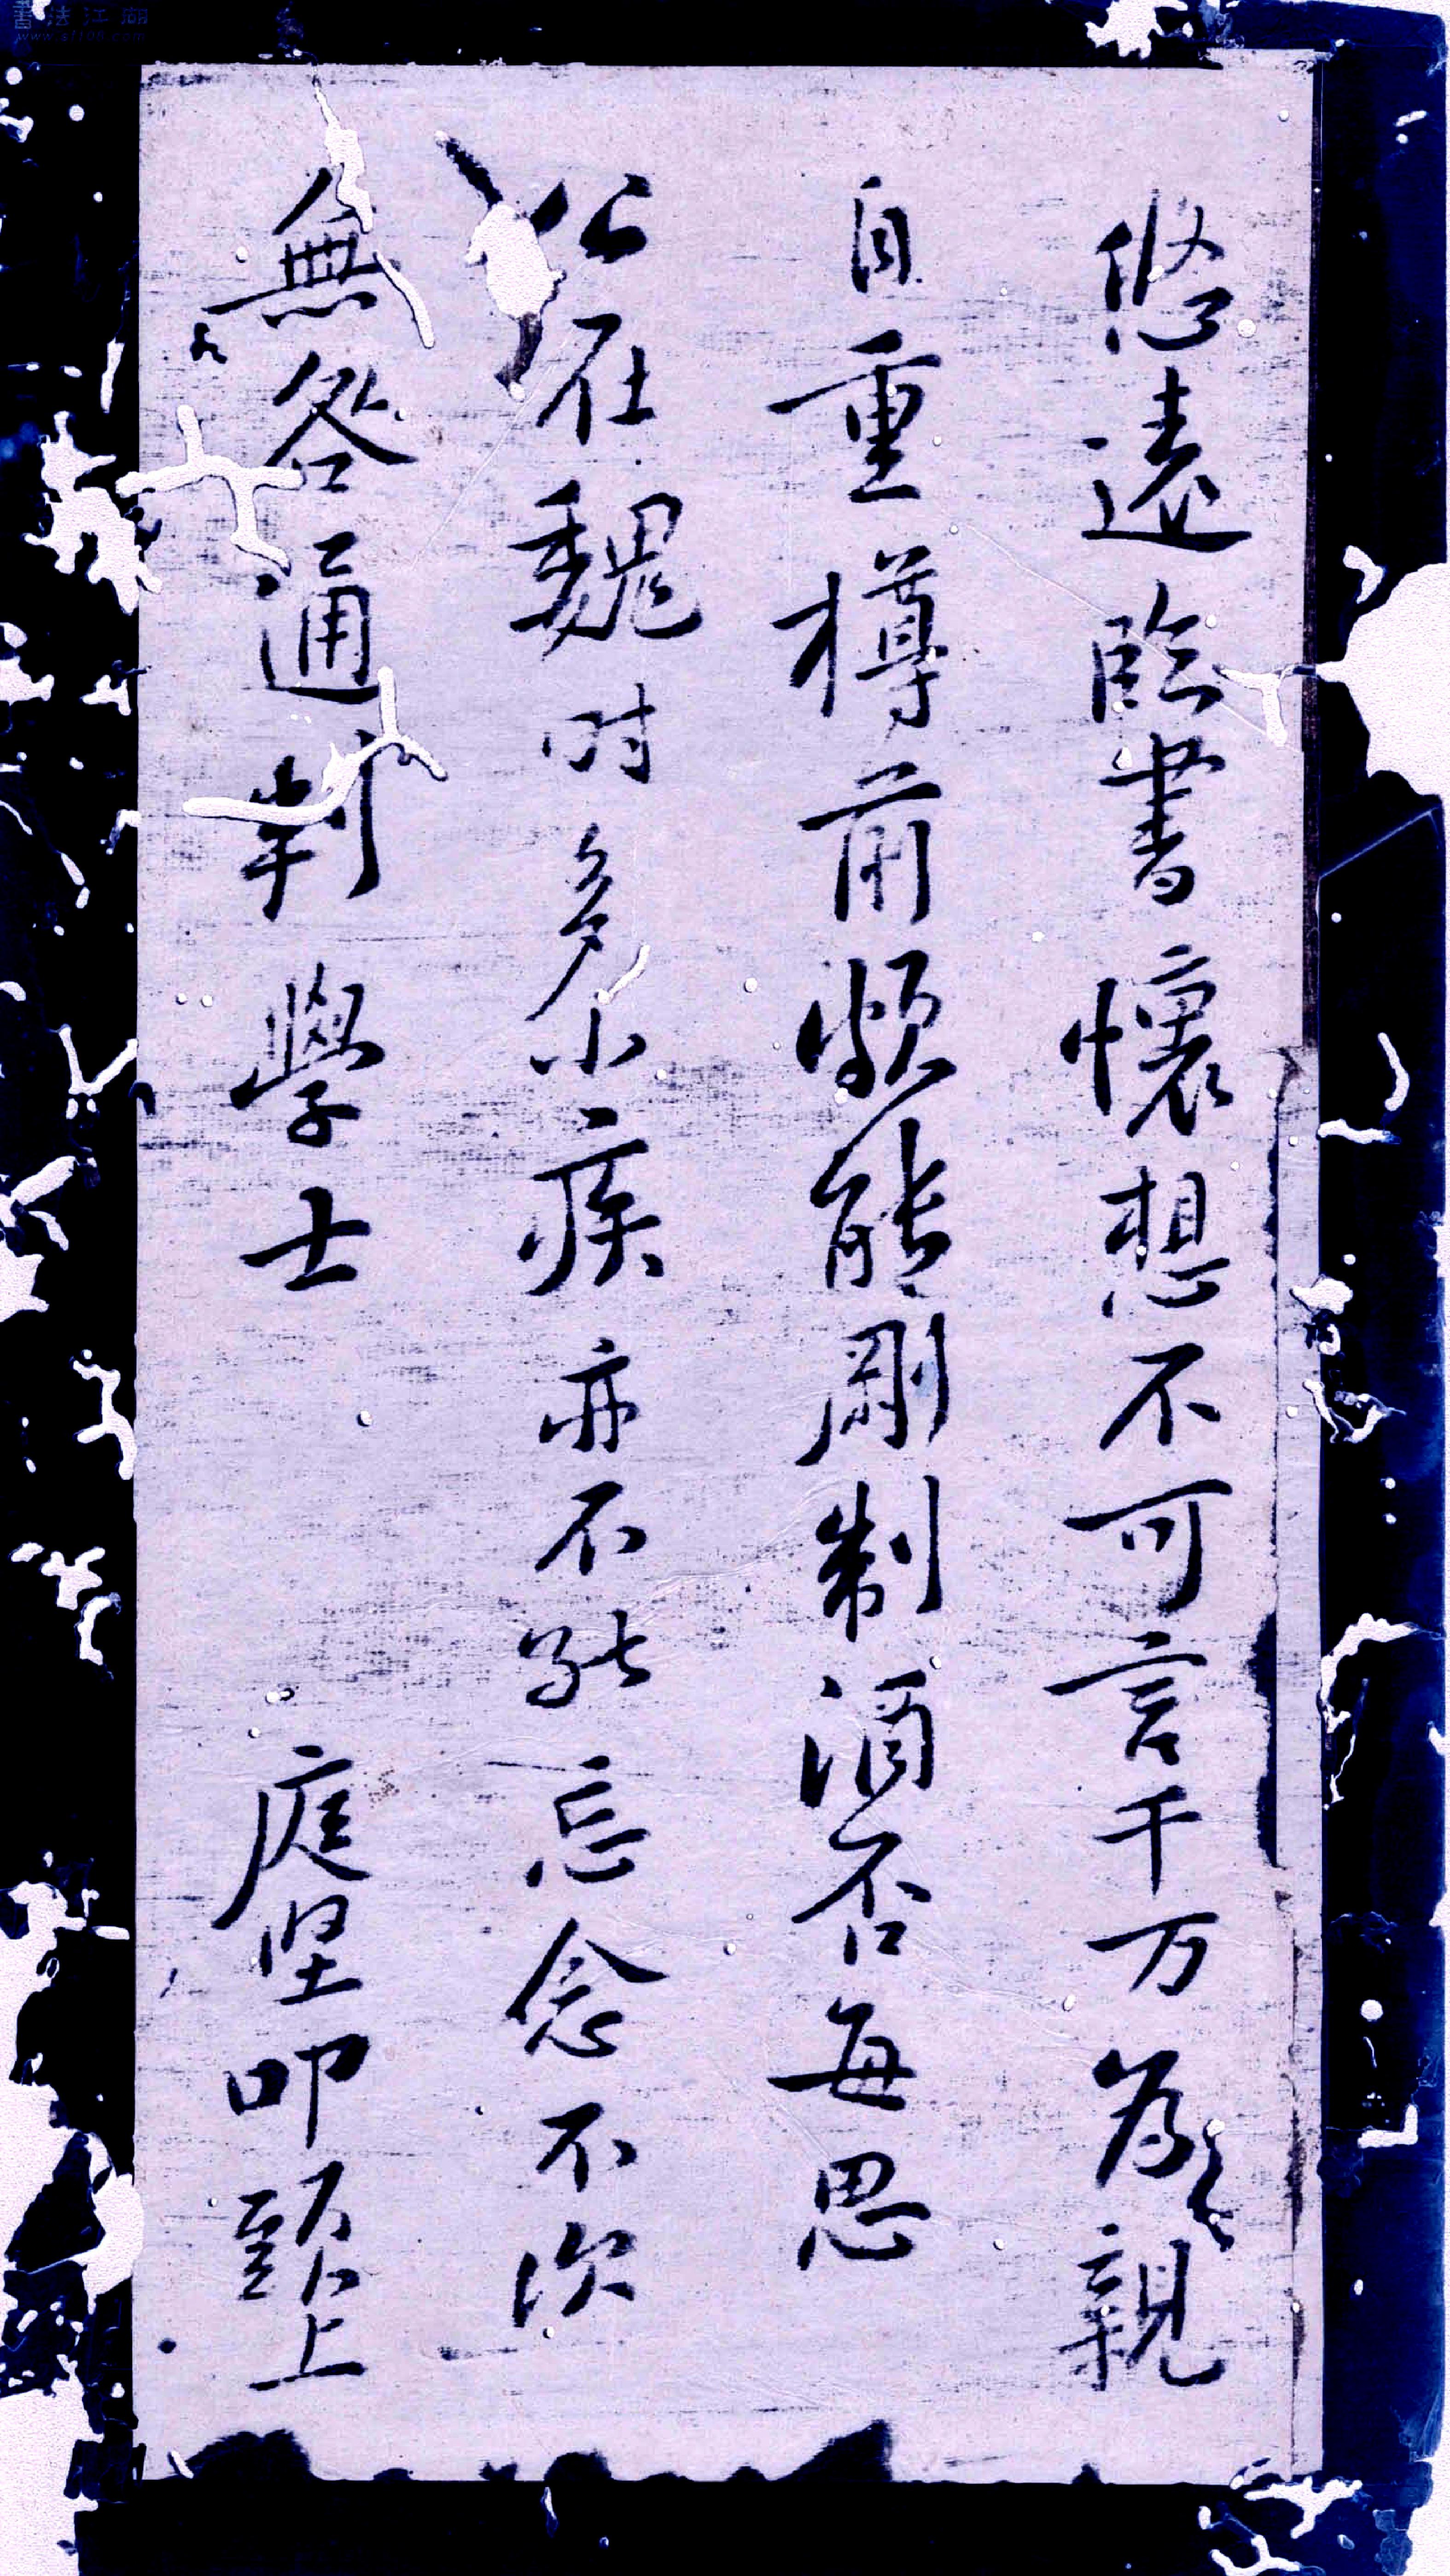 悠遠臨書懷想不可言千万為親
自重樽前頗能剛制酒否每思
公在魏时多小疾亦不能忘念不次
無咎通判學士 庭坚叩頭上
書法江湖